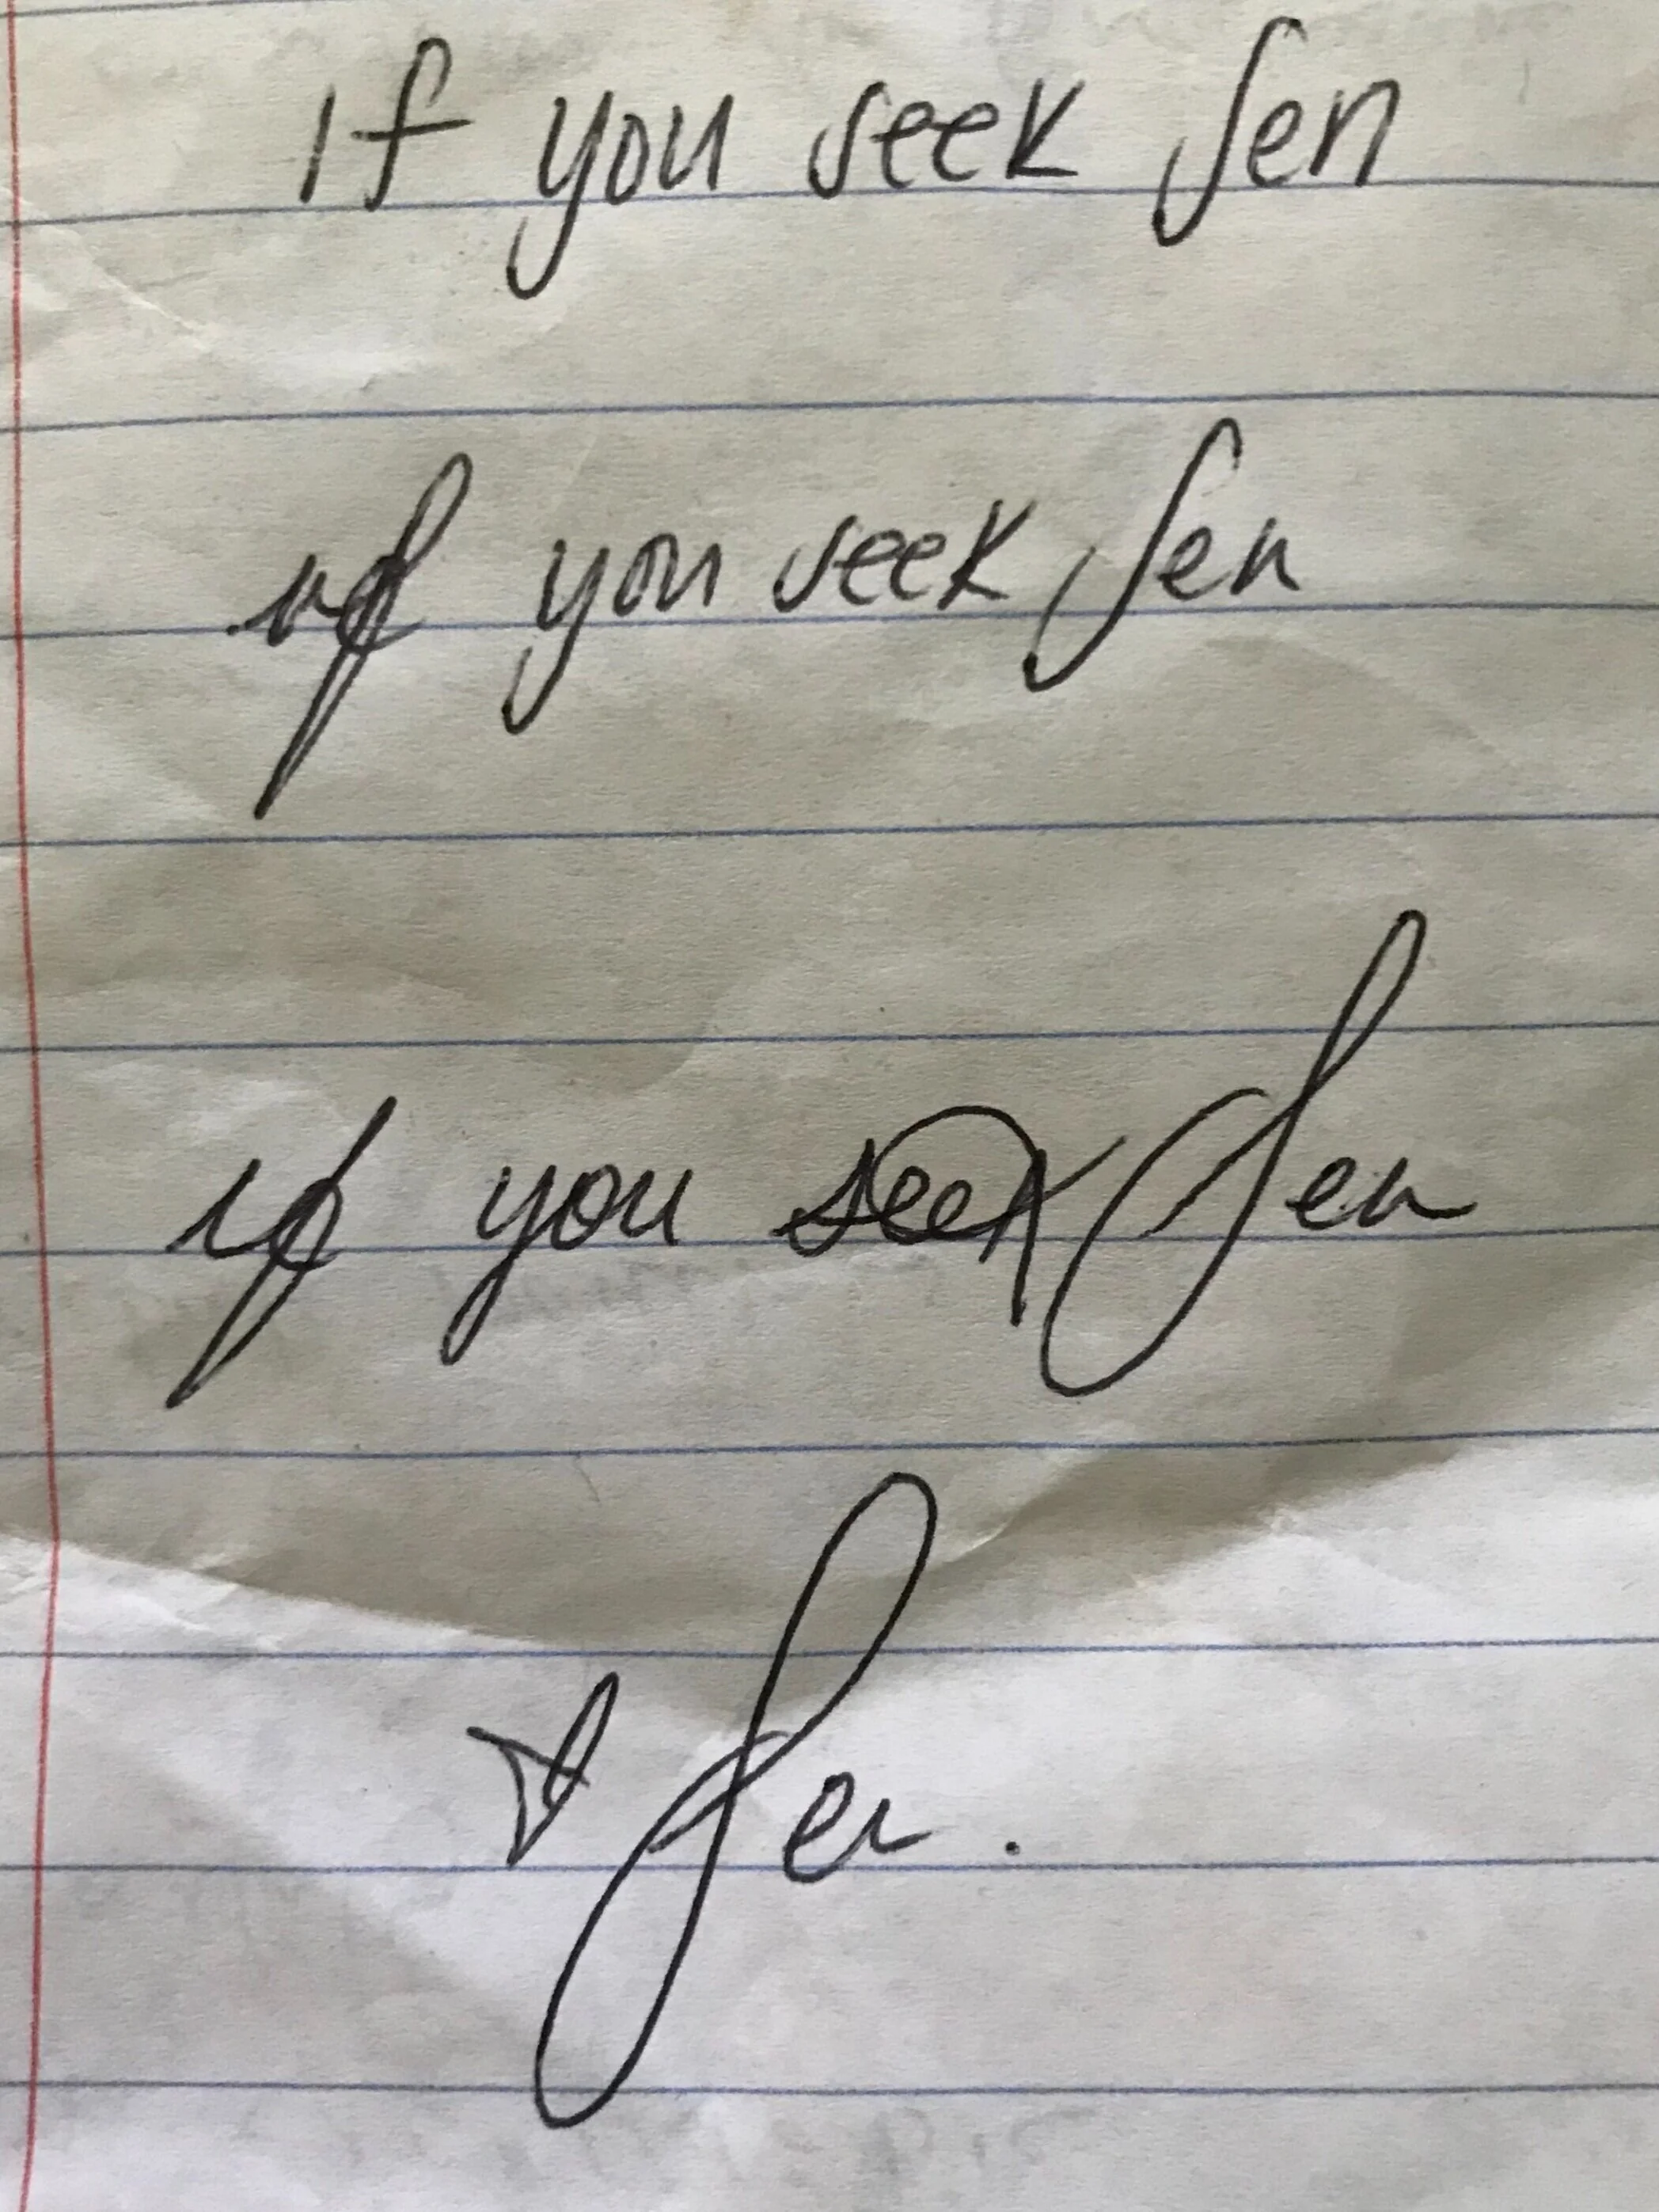 If you seek Jen
if you seek Jen
if you seek Jen
Jen.